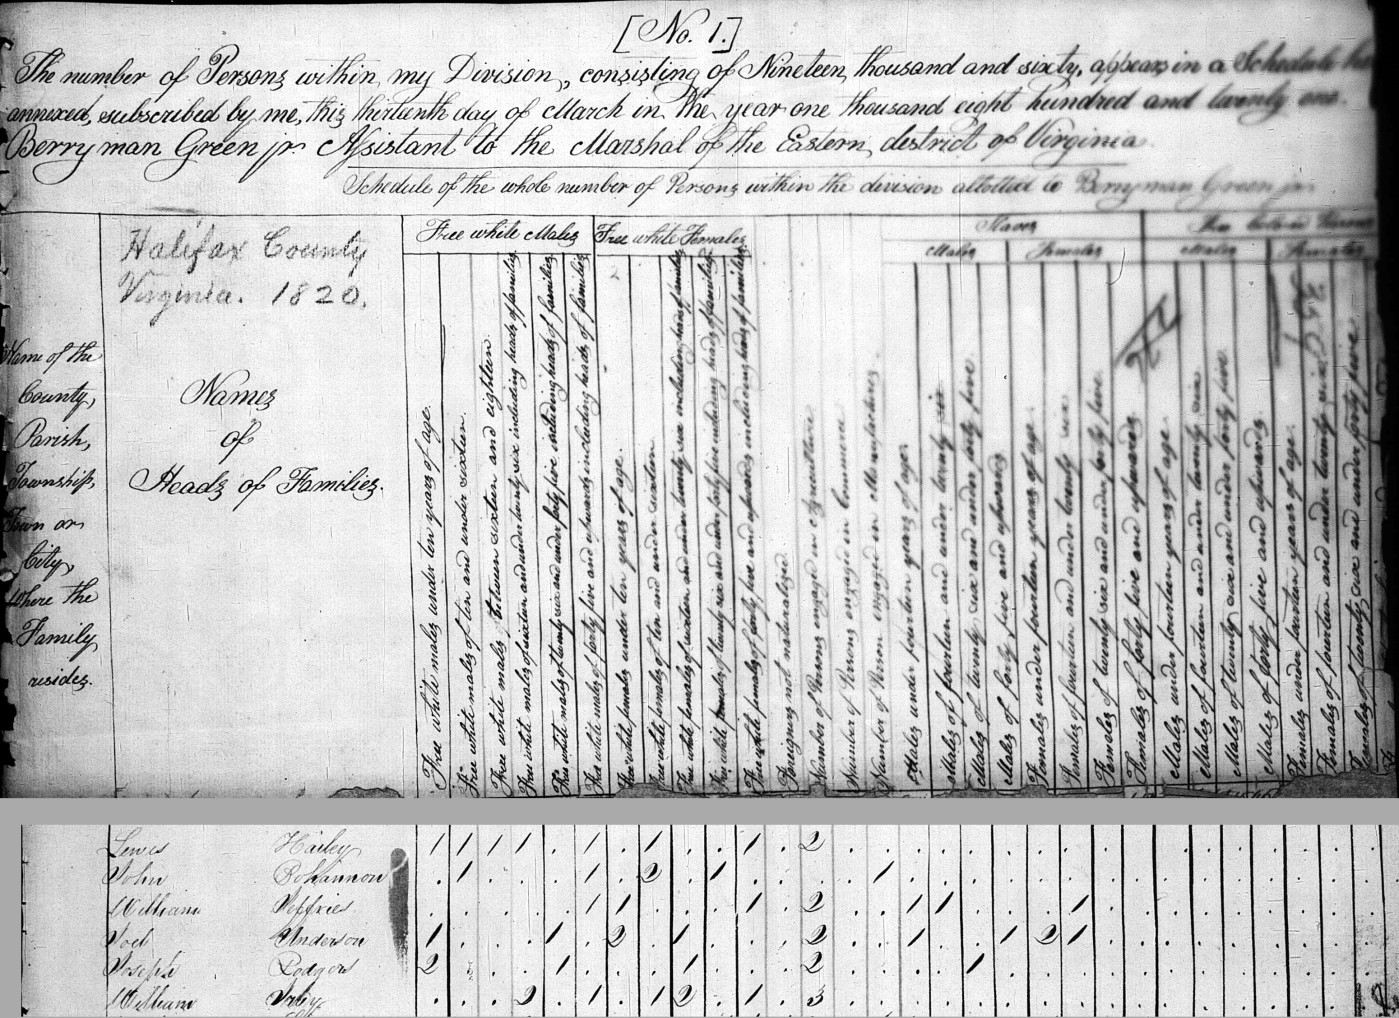 [No. 1.]
The number of Persons within my Division, consisting of Nineteen thousand and sixty, appears in a Schedule
annexed, subscribed by me, this thirteenth day of March in the year one thousand eight hundred and twenty one.
Berryman Green jr. Assistant to the Marshal of the Eastern district of Virginia
Schedule of the whole number of Persons within the division allotted to Berryman Green jr.
Halifax County
Virginia. 1820.
Name of the
County,
Parish,
Township,
Town or
City,
where the
Family
resides.
Names
of
Heads of Families.
Free white Males
Free white Females
Slaves
Males
Females
Free Colored Persons
Males
Females
Free white males under ten years of age.
Free white males of ten and under sixteen.
Free white males between sixteen and eighteen
Free white males of sixteen and under twenty six including heads of families
Free white males of twenty six and under forty five including heads of families
Free white males of forty five and upwards including heads of families
Free white females under ten years of age.
Free white females of ten and under sixteen
Free white females of sixteen and under twenty six including heads of families
Free white females of twenty six and under forty five including heads of families
Free white females of forty five and upwards including heads of families
Foreigners not naturalized.
Number of Persons engaged in Agriculture
Number of Persons engaged in Commerce
Number of Persons engaged in Manufactures
Males under fourteen years of age
Males of fourteen and under twenty six
Males of twenty six and under forty five
Males of forty five and upwards
Females under fourteen years of age
Females of fourteen and under twenty six
Females of twenty six and under forty five
Females of forty five and upwards
Males under fourteen years of age
Males of fourteen and under twenty six
Males of twenty six and under forty five
Males of forty five and upwards
Females under fourteen years of age
Females of fourteen and under twenty six
Females of twenty six and under forty five
Lewis Hailey 1 1 1 1 . 1 . 1 . . 1 . 2
John Bohannon . 1 . . . 1 . 2 . 1 . . . . 1
William Jeffries . . . . . 1 1 . . . 1 . 2 . . 1 1 . . . 1
Joel Anderson 1 . . . 1 . 2 . 1 . . . 2 . . 1 . . 1 2 1
Joseph Rodgers 2 . . . 1 . . . 1 . . . 2 . . . . 1
William Irby . . . 2 . 1 . 1 2 . 1 . 3